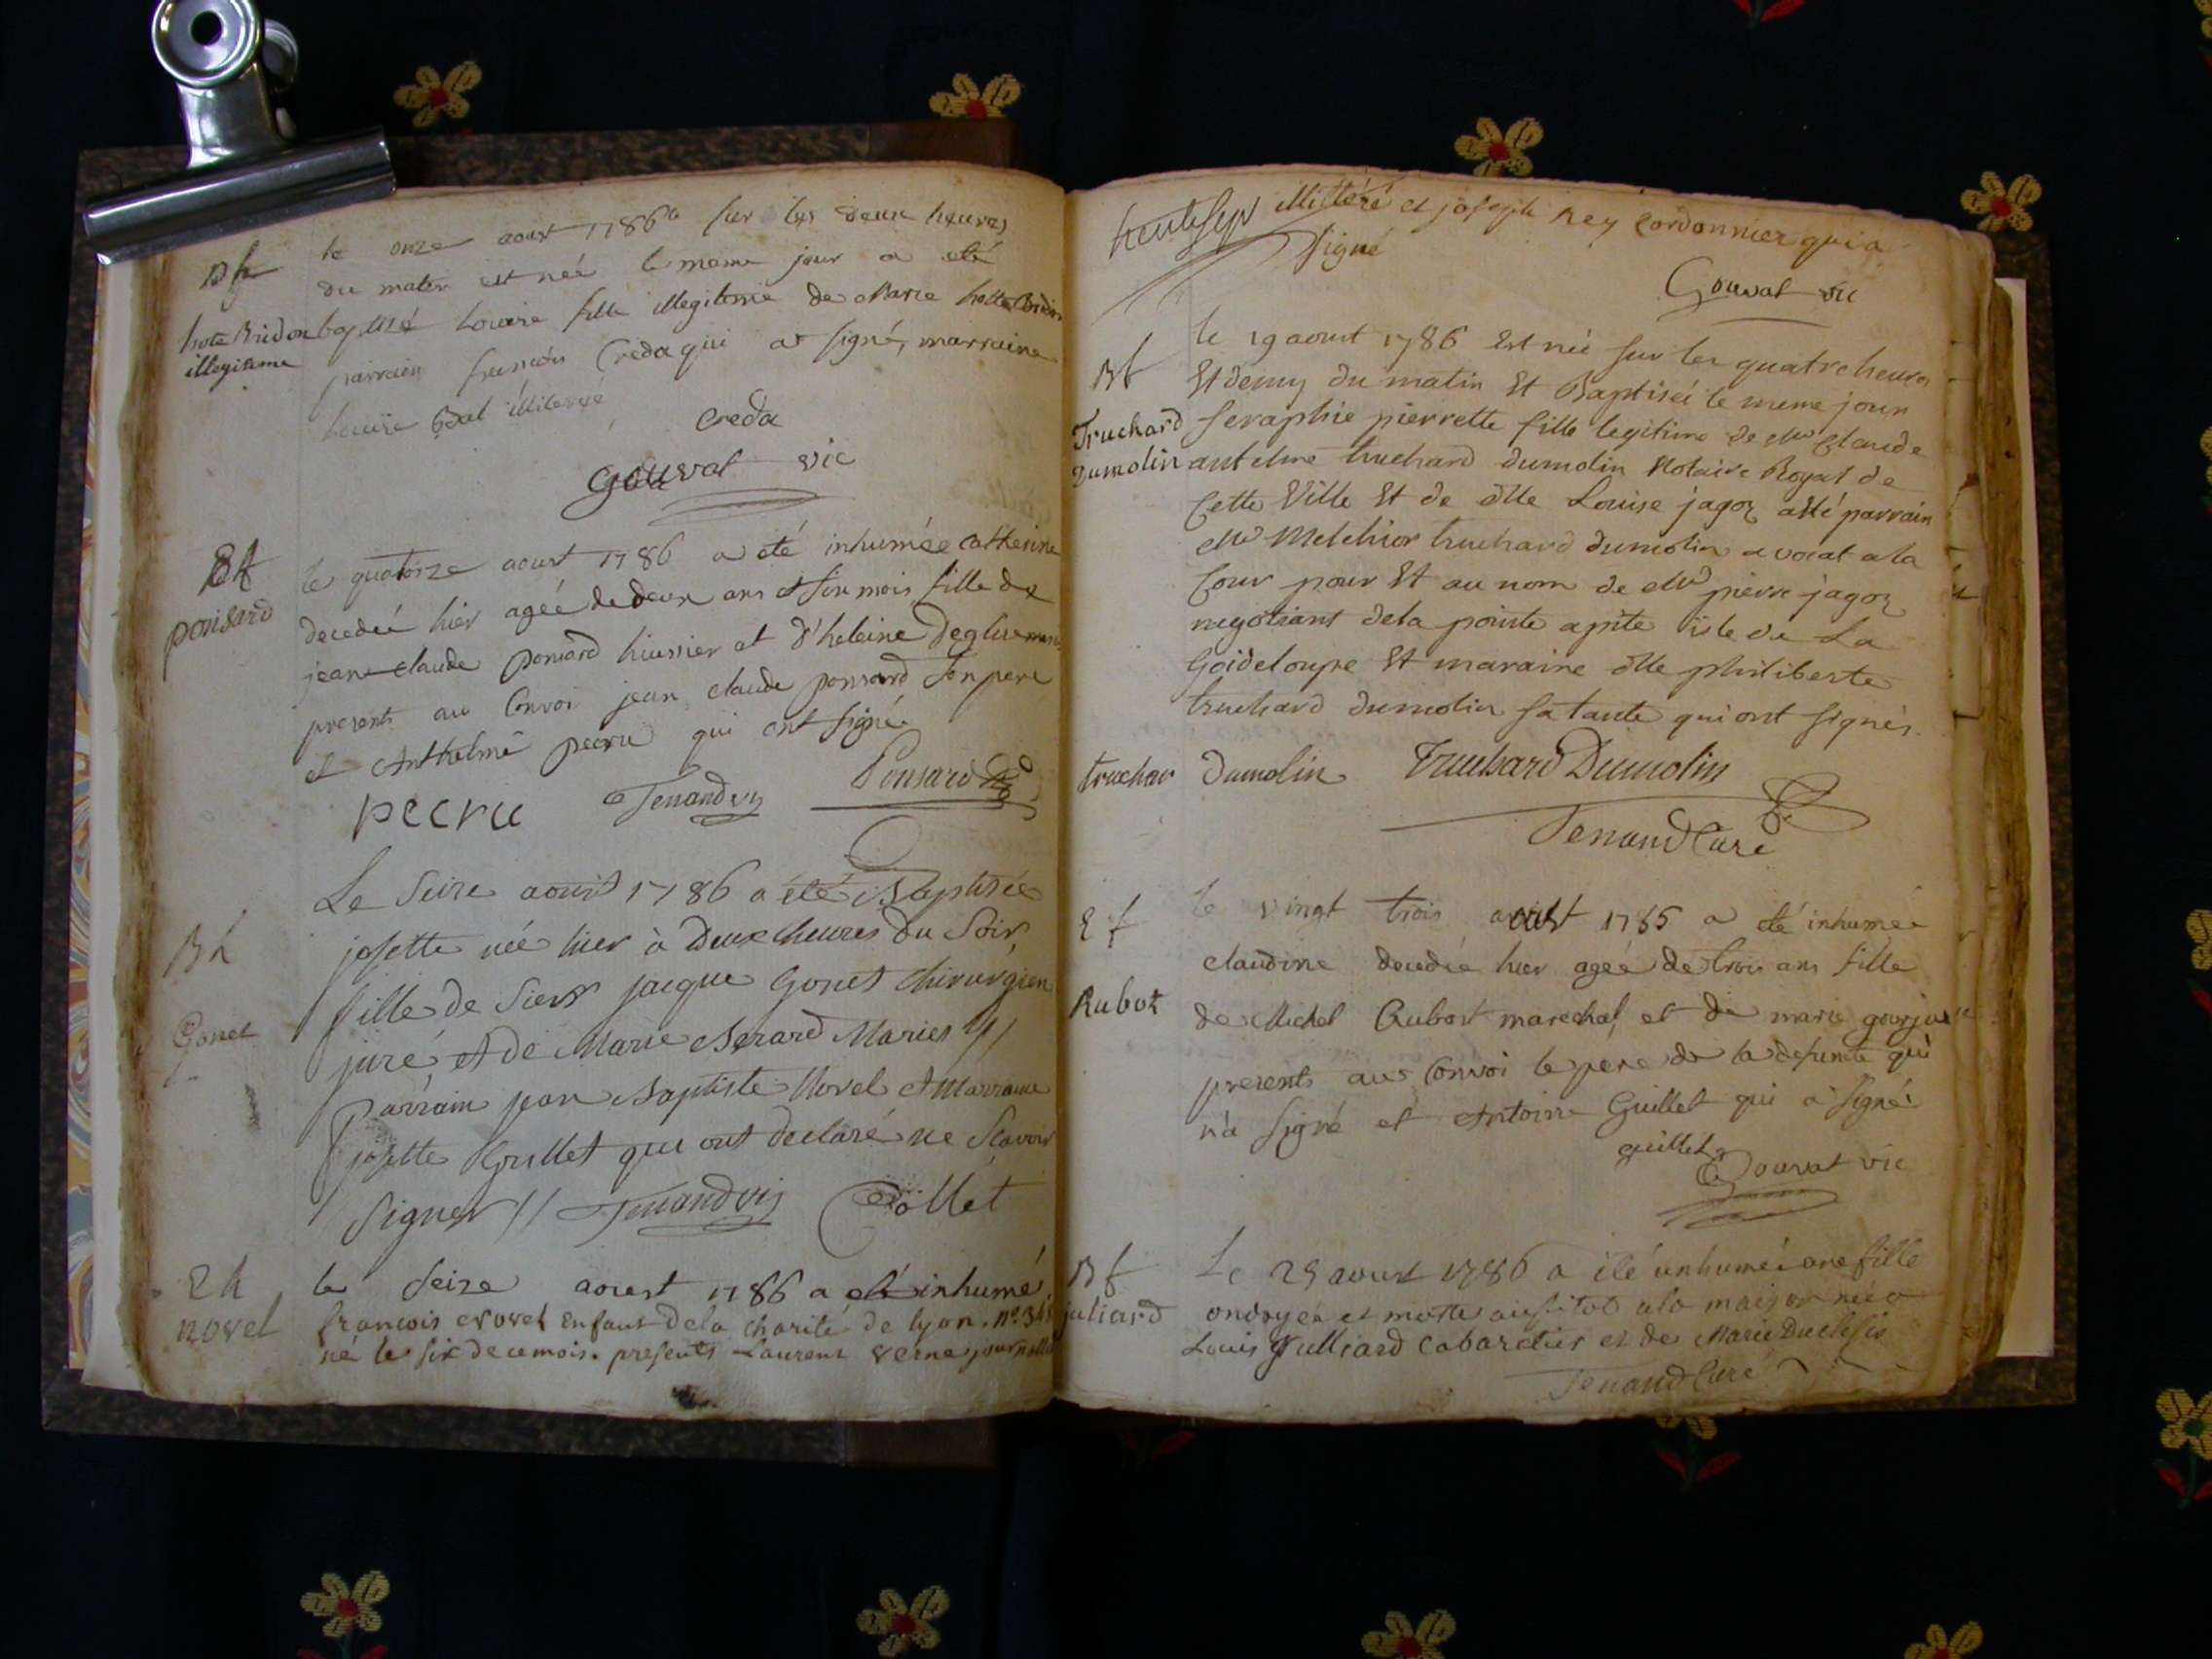 le onze aoust 1786 sur les deux heures
du matin est née le meme jour a eté
baptisé Louise fille illegitime de Marie hotte Bridon
hote Bridon
illegitime
parrain francois Creda qui a signé, marraine
Louise Bal illiterée
Creda
Gouvat vic
Ef
ponsard
le quatorze aoust 1786 a eté inhumée catherine
decedée hier agée de deux ans et six mois fille de
jean claude ponsard huissier et d'heleine
presents au Convoi jean claude ponsard son pere
et Anthelme pecru qui ont signé
pecru Tenand vic Ponsard
Le Seize aoust 1786 a été Baptisée
josette née hier à Deux heures Du Soir,
fille de Sieur jacque Gonet Chirurgien
Gonet
juré et de Marie Berard Mariés //
Parrain jean Baptiste Novel et Marraine
josette Grullet qui ont declaré ne Scavoir
Signer // Tenand vic Collet
E h
novel
le seize aoust 1786 a eté inhumé
francois novel enfant dela charité de lyon. n°
né le six de ce mois. presents Laurent verne journallier
trente sept illitéré et joseph Rey Cordonnier qui a
signé
Gouvat vic
Bf
le 19 aoust 1786 Est née sur les quatre heures
Et demy du matin Et Baptisée le meme jour
Truchard
Dumolin
seraphie pierrette fille legitime de Mr Claude
antelme truchard dumolin Notaire Royal de
Cette Ville Et de dlle Louise jagoz a été parrain
Mr Melchior truchard dumolin avocat a la
Cour pour Et au nom de Mr pierre jagoz
negotiant dela pointe apite isle de La
Goideloupe Et maraine dlle philiberte
truchard dumolin sa tante qui ont signés.
truchar Dumolin Truchard Dumolin
Tenand Curé
E f
le vingt trois aoust 1786 a eté inhumée
claudine decedée hier agée de trois ans fille
Rubot
de Michel Rubost marechal, et de marie
presents au Convoi le pere de la defunte qui
n'a signé et Antoine Guillet qui a signé
guillet
Gouvat vic
B f
juliard
Le 29 aoust 1786 a été inhumée une fille
ondoyée et morte aussitot a la maison née a
Louis Julliard Cabaretier et de Marie
Tenand Curé